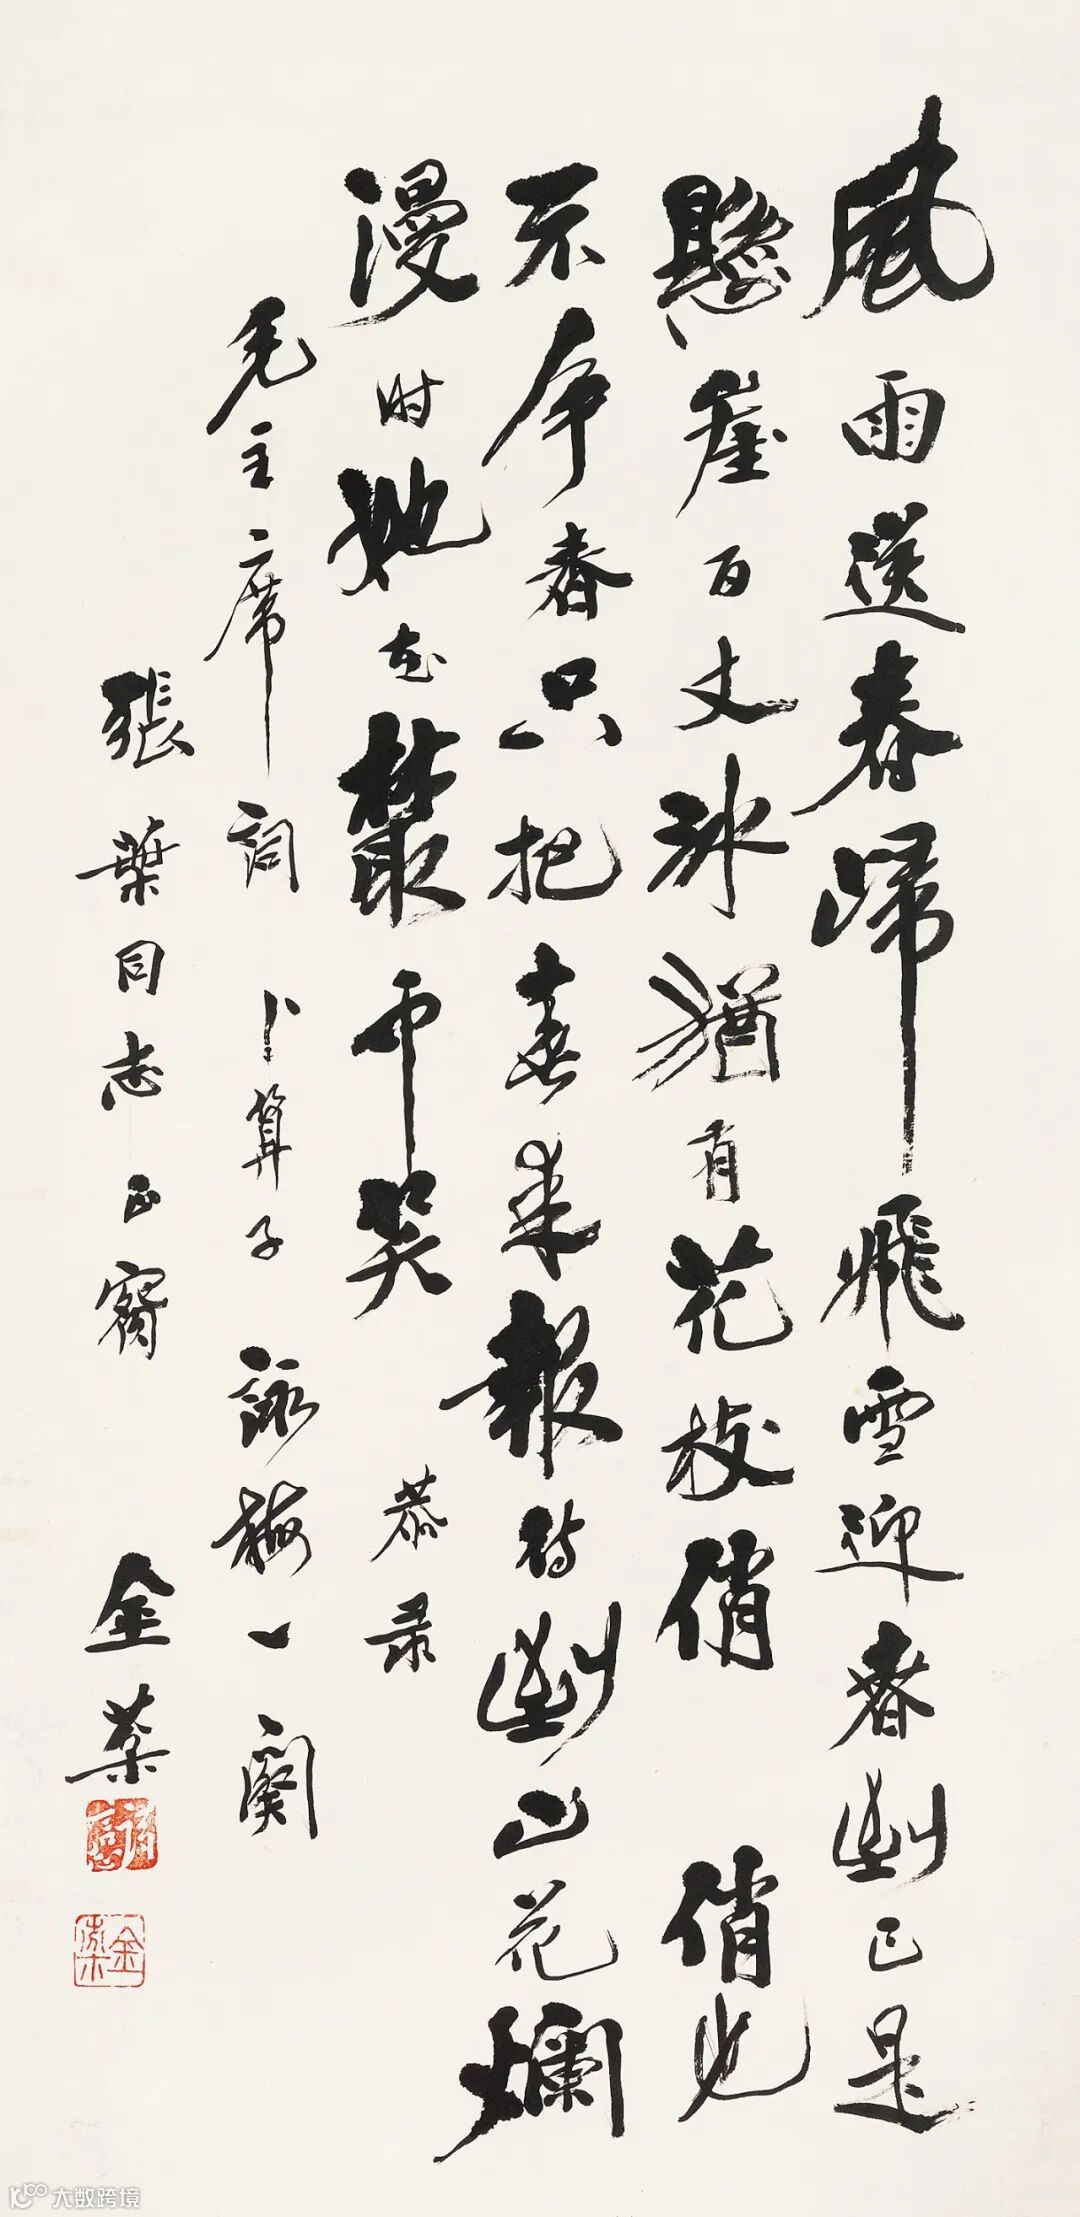 風雨送春歸飛雪迎春到已是
懸崖百丈冰猶有花枝俏 俏也
不争春只把春来報待到山花爛
漫时她在叢中笑 恭录
毛主席詞 卜算子 詠梅一闋
張葉同志正 金
大数跨境